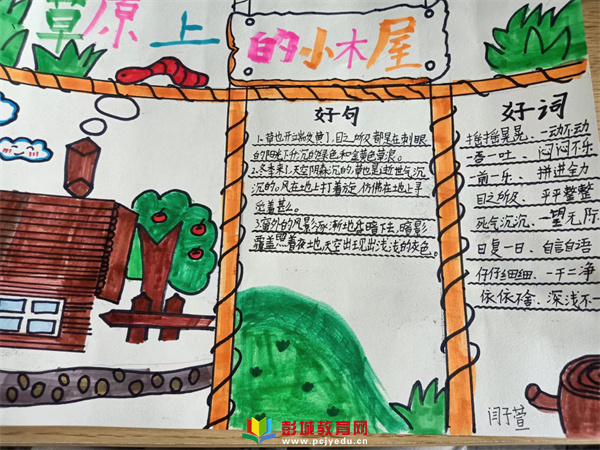 草原上
的小木屋
好句
1.草也开始发黄了,目之所及都是在刺眼
的阳光下沉沉的绿色和金黄色草浪。
2.冬季来了,天空阴森沉的,草也是逝世气沉
沉的。风在地上打着旋,仿佛在地上寻
觅着甚么。
窗外的风景逐渐地在暗下去,暗影
覆盖照着夜地,天空出现出浅浅的灰色。
好词
摇摇晃晃、一动不动
一吞一吐、闷闷不乐
一前一乐、拼进全力
目之所及、平平整整
死气沉沉、一望无际
日复一日、自言自语
仔仔细细、一干二净
依依不舍、深浅不一
闫子萱
彭城教育网
www.pcjyedu.cn